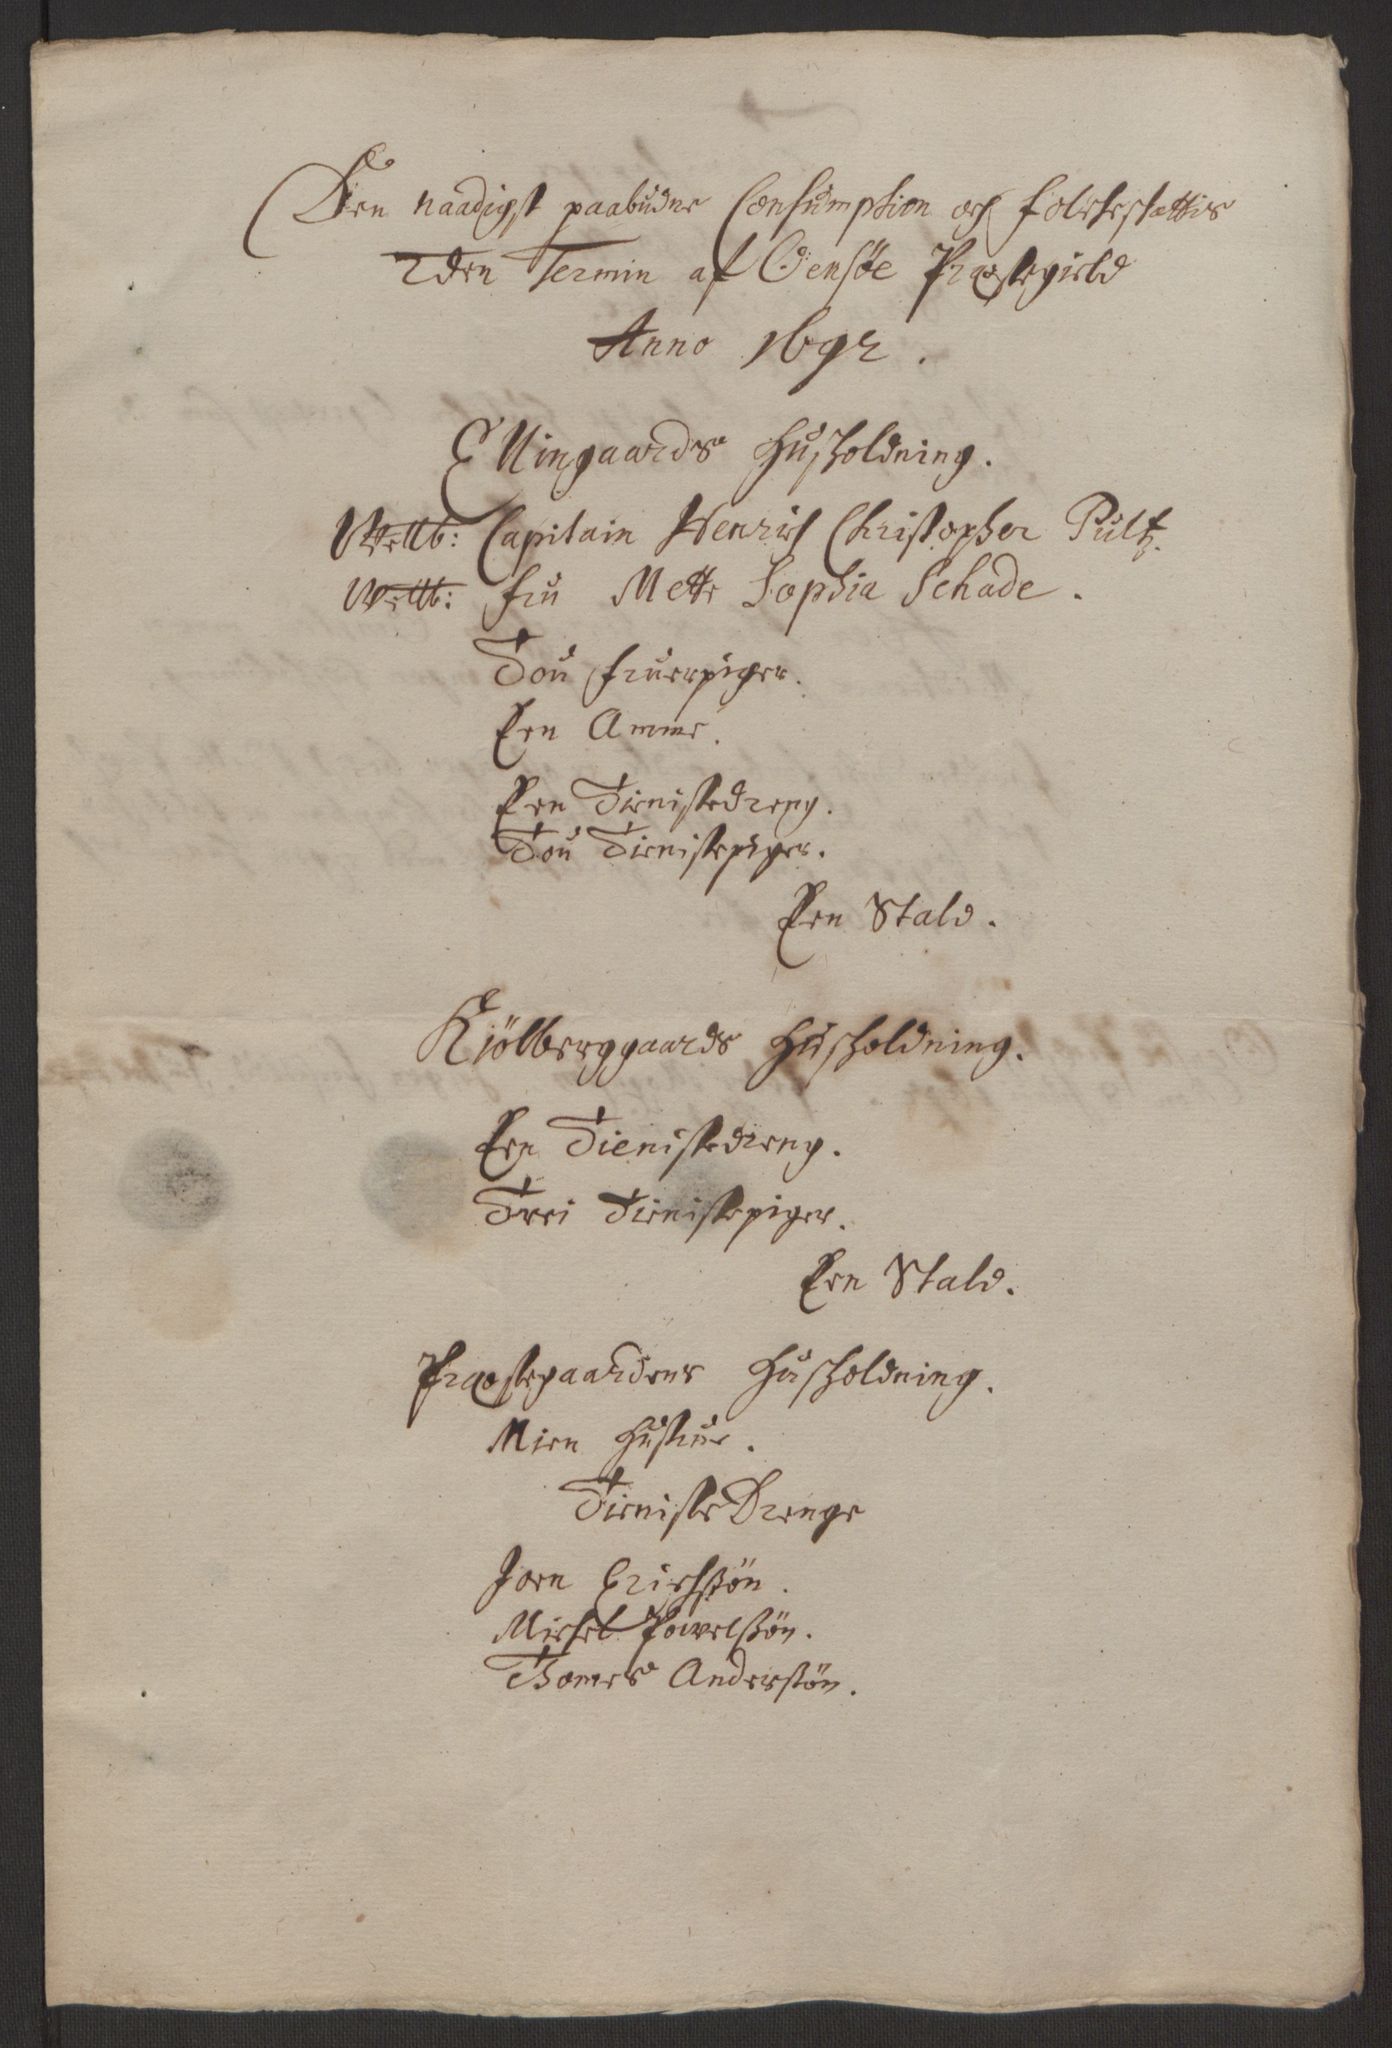 Den naadigst paabudne Consumption och folcheskattis
2den Termin af Oensöe Præstegield
Anno 1692.
Ellingaards Husholdning.
Wellb: Capitain Henrich Christopher Pultz.
Wellb: fru Mette Sophia Schade.
Tou fruerpiger.
Een Amme.
Een Tienistedreng.
Tou Tienistepiger.
Een Stald.
Kiölberggaards Husholdning.
Een Tienistedreng.
Trei Tienistepiger.
Een Stald.
Præstegaardens Husholdning.
Mien Hustrue.
Tieniste Drenge
Joen Erichsøn.
Michel Powelsøn.
Thomes Andersøn.